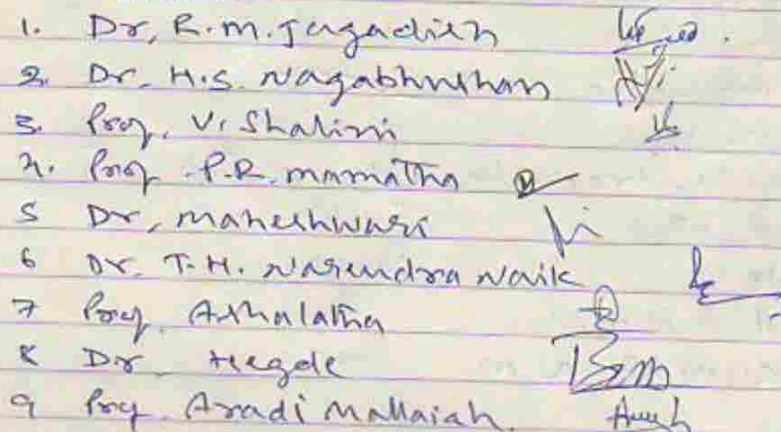 1. Dr, R.M. Jagadish
2. Dr. H.S. Nagabhushan
3. Prof. V. Shalini
4. Prof. P.R. mamatha
5 Dr, maheshwari
6 Dr. T.H. Narendra Naik
7 Prof. Ashalatha
8 Dr Hegde
9 Prof. Aradi Mallaiah.